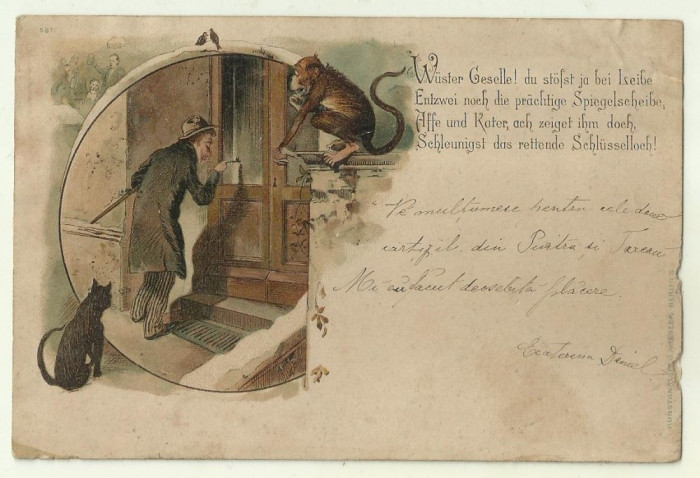 587
Wüster Geselle! du stößt ja bei Leibe
Entzwei noch die prächtige Spiegelscheibe,
Affe und Kater, ach zeiget ihm doch,
Schleunigst das rettende Schlüsselloch!
Vĕ mulțumesc pentru cele doue
cărți
din Piatra și Tazcău
Mi-au făcut deosebită plăcere.
Ecaterina